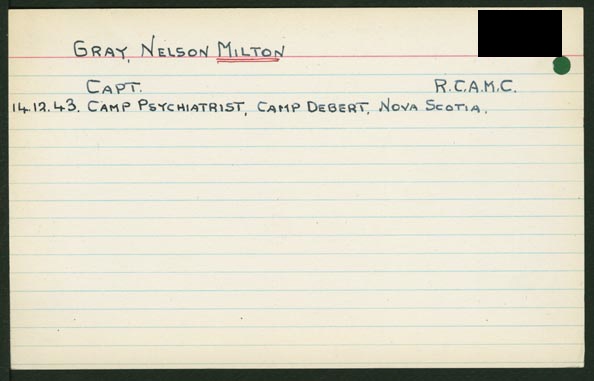 GRAY, NELSON MILTON
CAPT. R.C.A.M.C.
14.12.43. CAMP PSYCHIATRIST, CAMP DEBERT, NOVA SCOTIA.